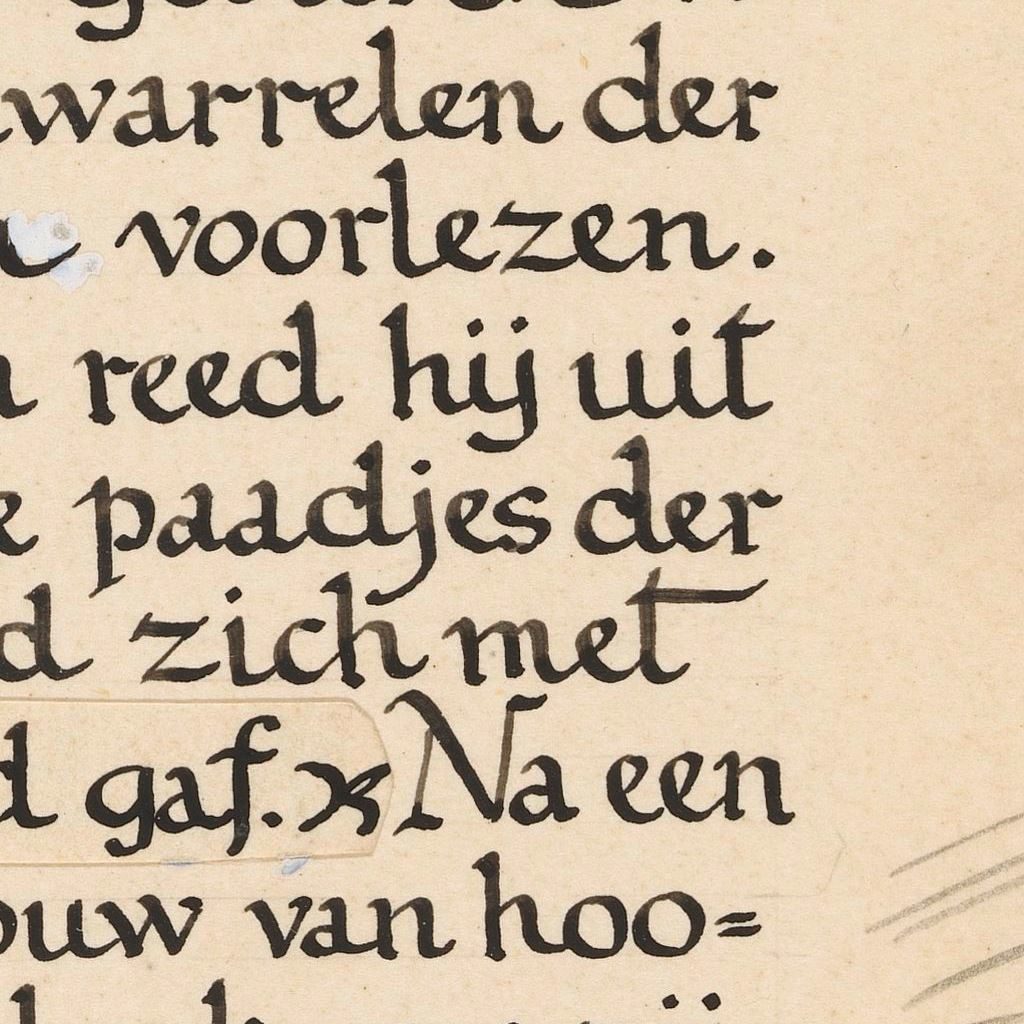 warrelen der
voorlezen.
reed hij uit
paadjes der
zich met
gaf. Na een
van hoo=